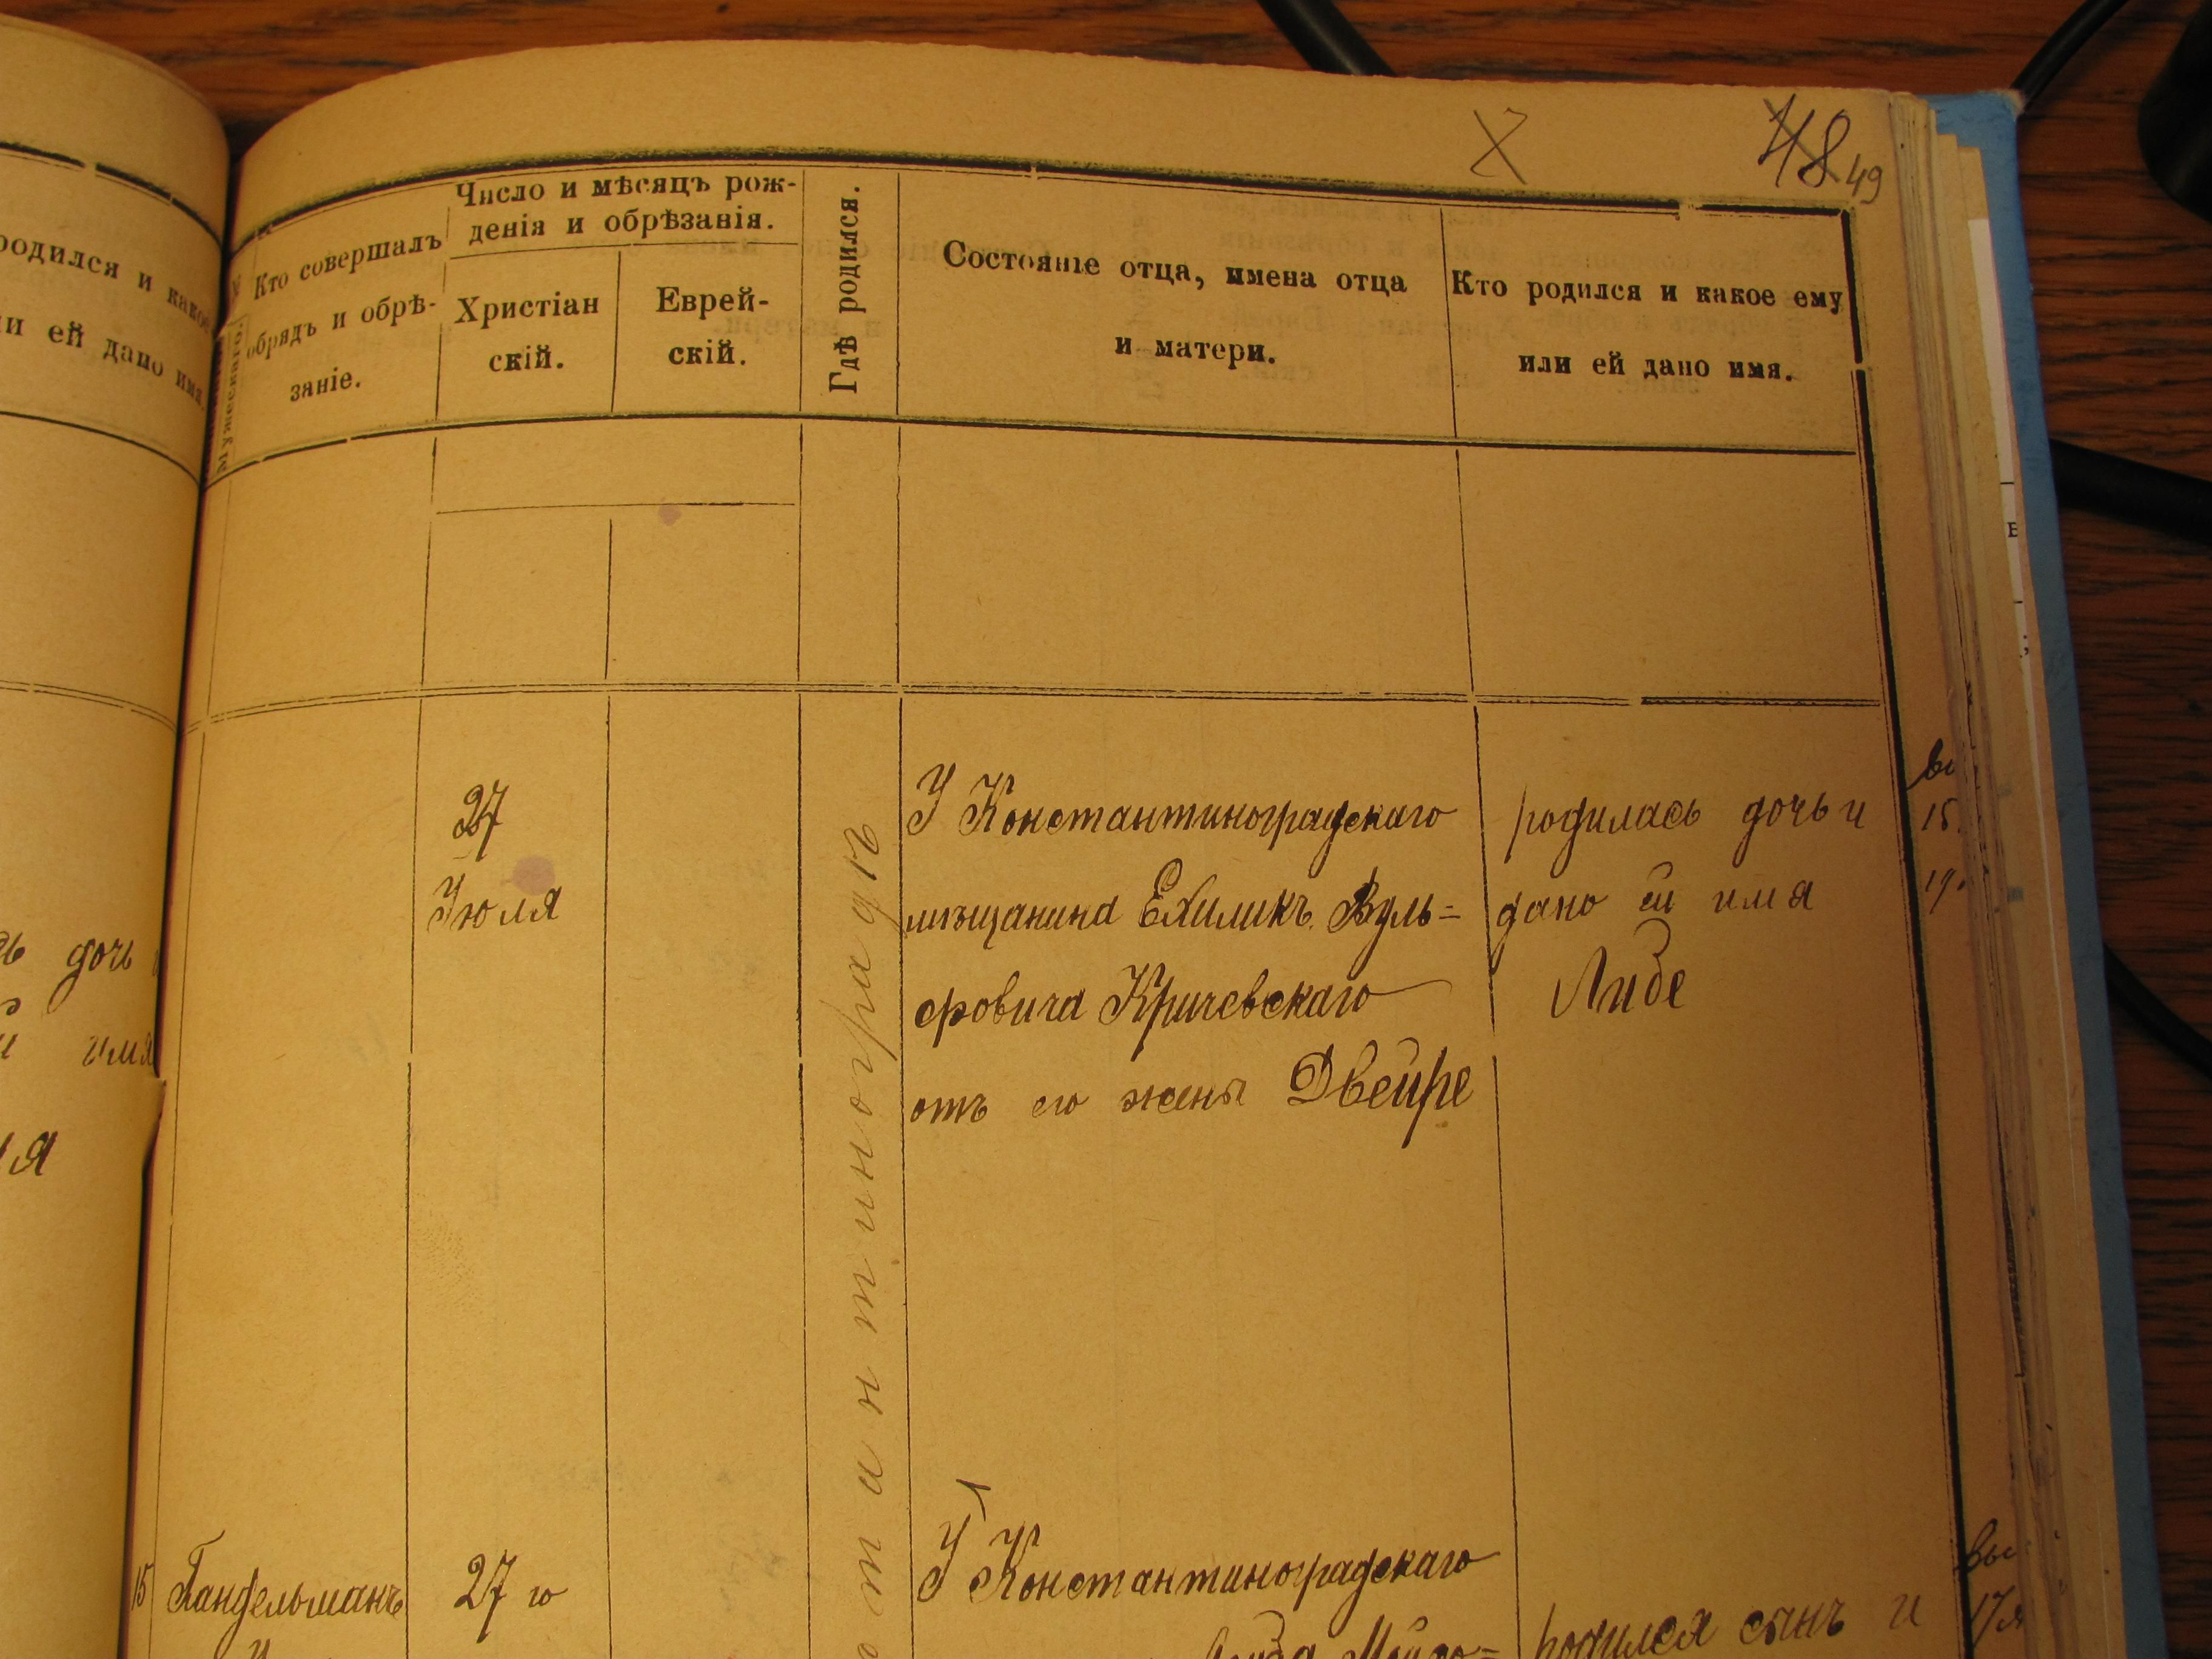 48 49
родился и какое
ли ей дано имя.
Мужескаго.
Кто совершалъ
обрядъ и обрѣ-
заніе.
Число и мѣсяцъ рож-
денія и обрѣзанія.
Христіан
скій.
Еврей-
скій.
Гдѣ родился.
Состояніе отца, имена отца
и матери.
Кто родился и какое ему
или ей дано имя.
дочь
имя
27
Іюля
У Константиноградскаго
мѣщанина Ехиликъ Вуль=
фовича Кричевскаго
отъ его жены Двейре
родилась дочь и
дано ей имя
Либе
15
Гандельманъ
27 го
У Константиноградскаго
родился сынъ и